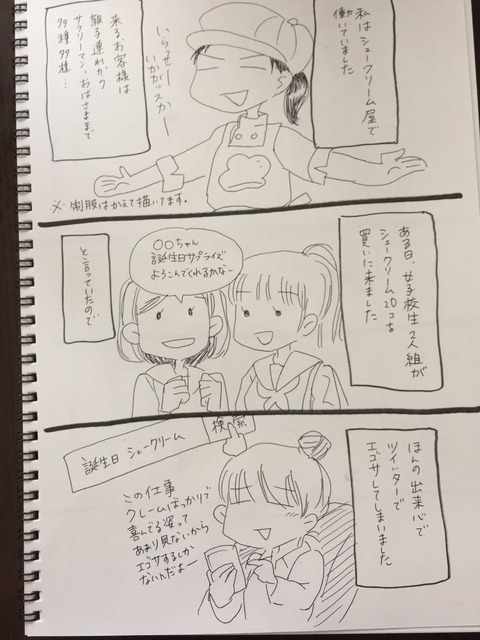 私はシュークリーム屋で
働いていました
いらっせー
いかがッスかー
来るお客様は
親子連れから
サラリーマン、おばさままで
多種多様…
※制服はかえて描いてます。
ある日、女子校生2人組が
シュークリーム20コを
買いに来ました
〇〇ちゃん
誕生日サプライズ
よろこんでくれるかなー
と言っていたので
ほんの出来心で
ツイッターで
エゴサしてしまいました
誕生日 シュークリーム
検索
この仕事
クレームばっかりで
喜んでる姿って
あまり見ないから
エゴサするしか
ないんだよー